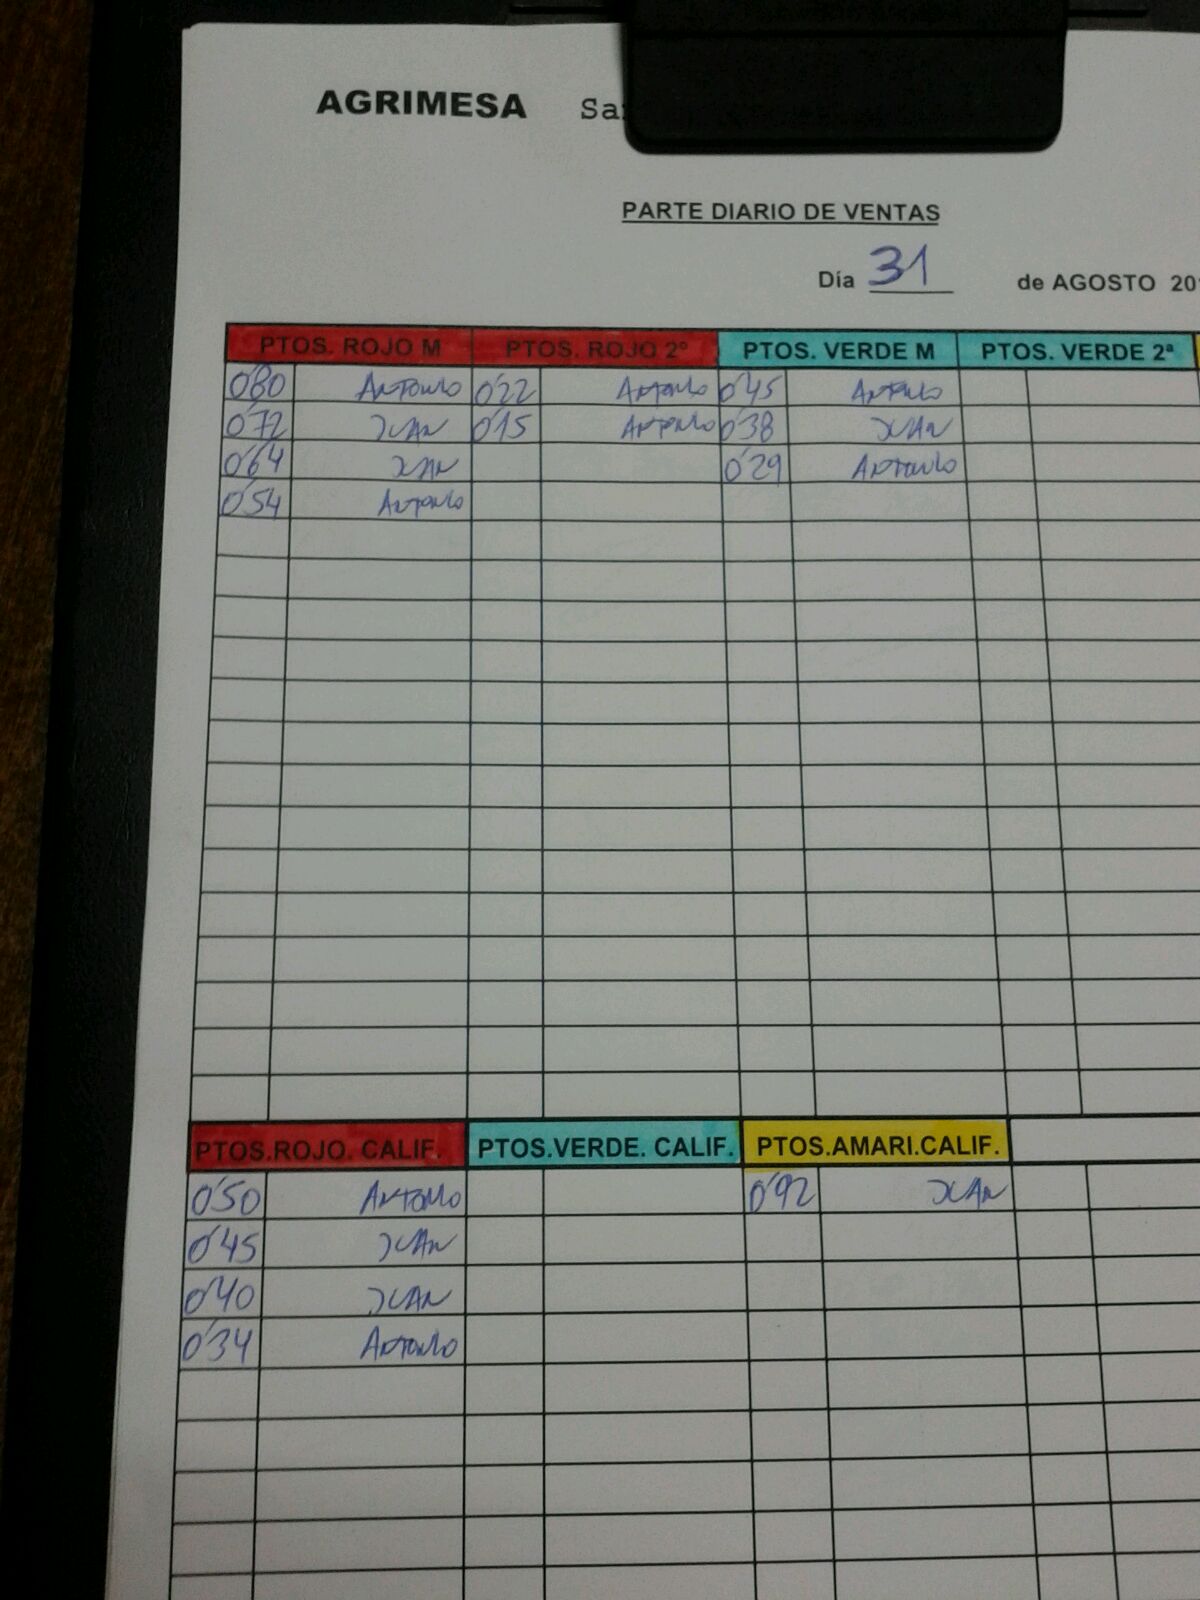 AGRIMESA
PARTE DIARIO DE VENTAS
Día 31 de AGOSTO
PTOS. ROJO M PTOS. ROJO 2º PTOS. VERDE M PTOS. VERDE 2ª
0'80 Antonio 0'22 Antonio 0'45 Antonio
0'72 JUAN 0'15 Antonio 0'38 JUAN
0'64 JUAN 0'29 Antonio
0'54 Antonio
PTOS.ROJO. CALIF. PTOS.VERDE. CALIF. PTOS.AMARI.CALIF.
0'50 Antonio 0'92 JUAN
0'45 JUAN
0'40 JUAN
0'34 Antonio